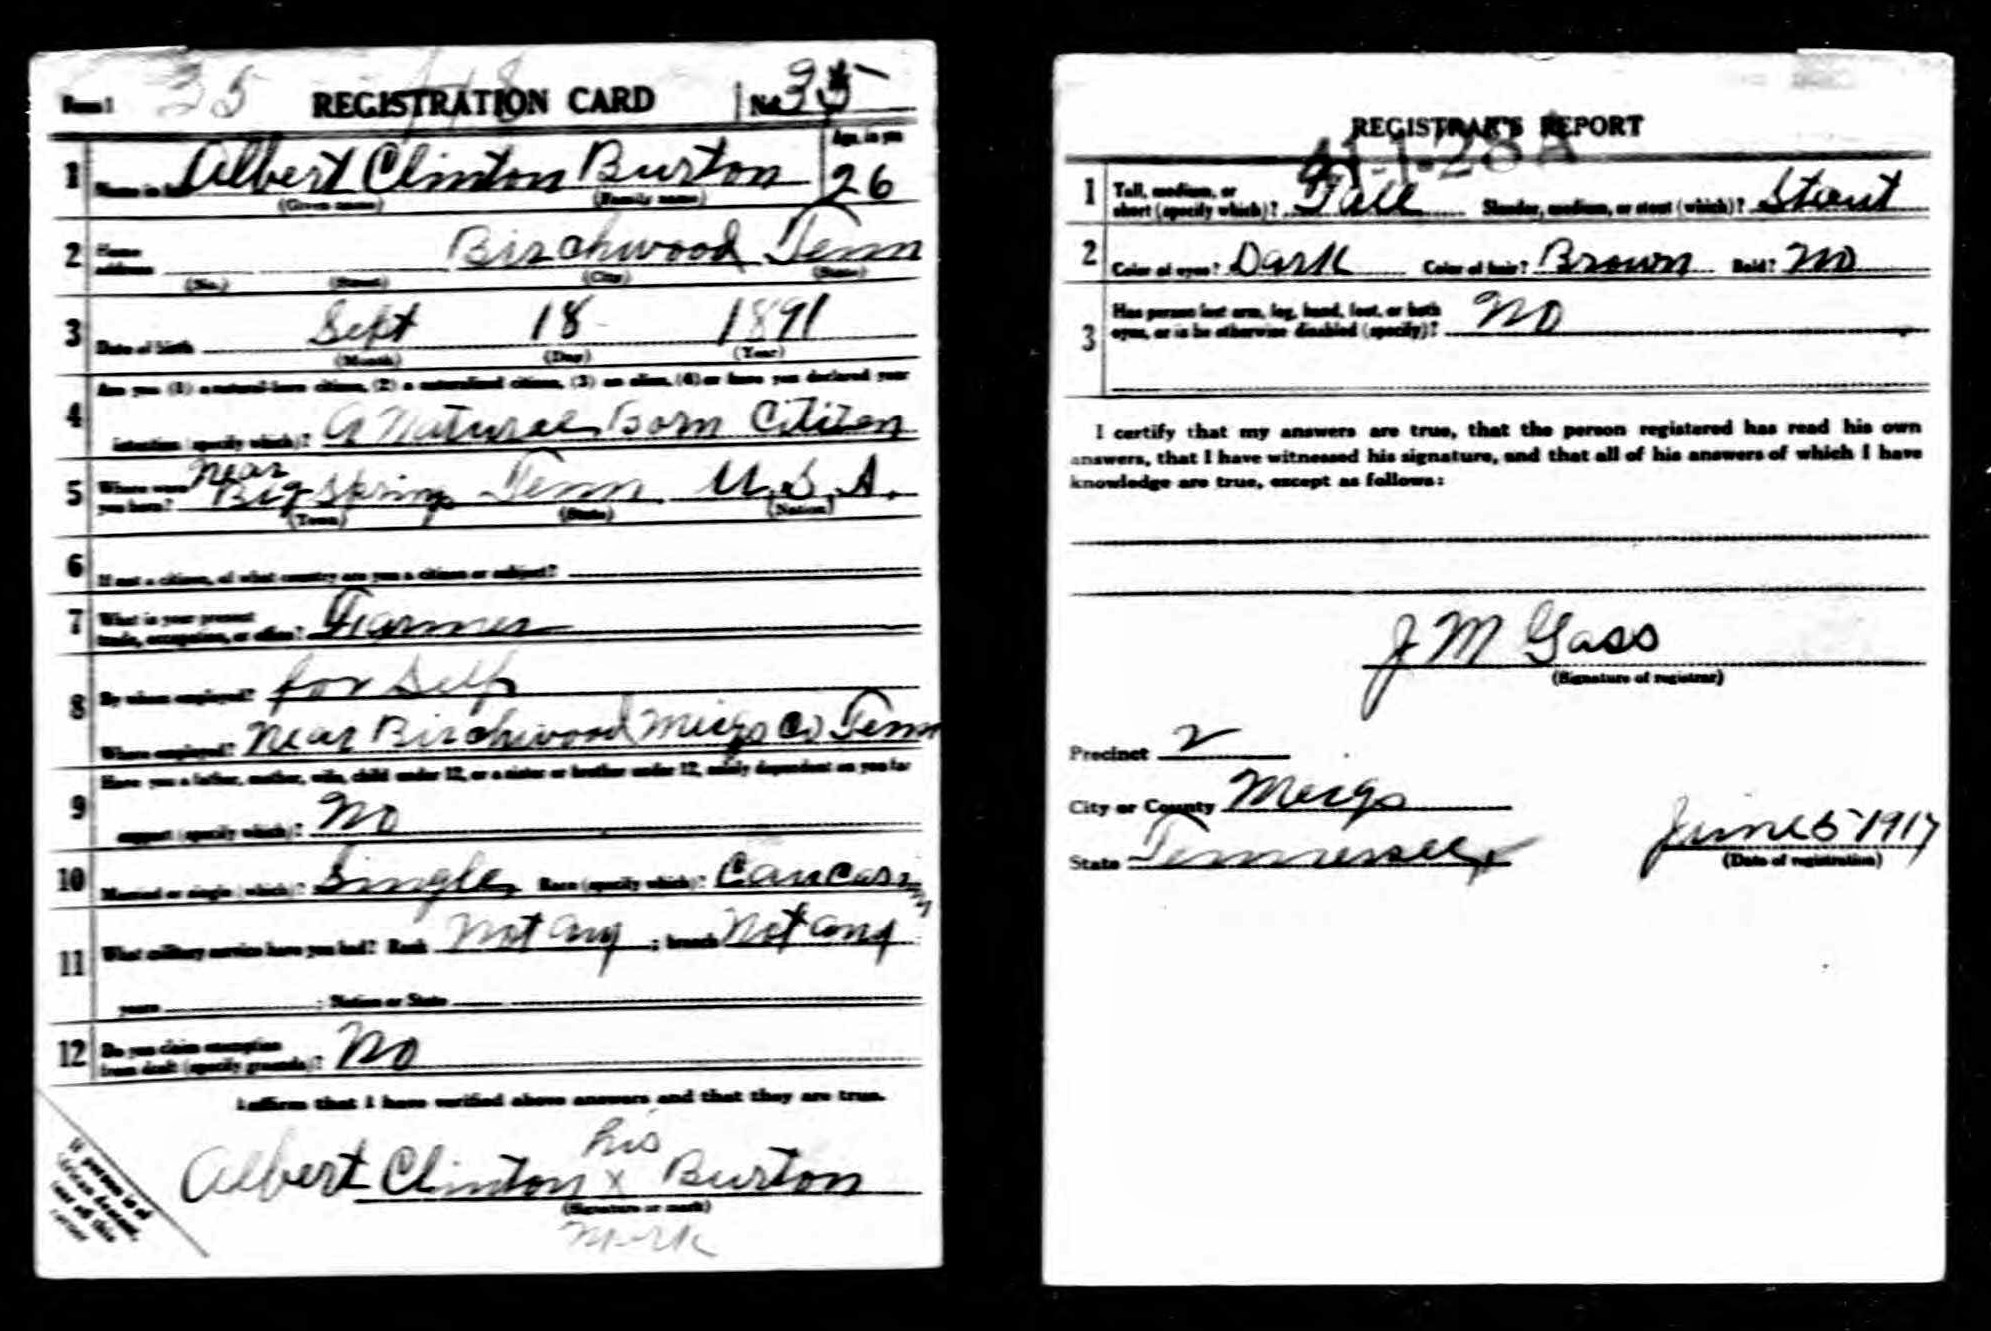 Form 1 35 REGISTRATION CARD No. 35
Age, in yrs
1 Name in full Albert Clinton Burton 26
(Given name) (Family name)
2 Home address Birchwood Tenn
(No.) (Street) (City) (State)
3 Date of birth Sept 18 1891
(Month) (Day) (Year)
Are you (1) a natural-born citizen, (2) a naturalized citizen, (3) an alien, (4) or have you declared your
4 intention (specify which)? A Natural Born Citizen
near
5 Where were you born? Big Spring Tenn U.S.A.
(Town) (State) (Nation)
6 If not a citizen, of what country are you a citizen or subject?
7 What is your present
trade, occupation, or office? Farmer
8 By whom employed? for Self
Where employed? Near Birchwood Meigs Co Tenn
Have you a father, mother, wife, child under 12, or a sister or brother under 12, solely dependent on you for
9 support (specify which)? No
10 Married or single (which)? Single Race (specify which)? Caucasin
11 What military service have you had? Rank Not any ; branch Not any
years ; Nation or State
12 Do you claim exemption
from draft (specify grounds)? No
I affirm that I have verified above answers and that they are true.
his
Albert Clinton x Burton
(Signature or mark)
Mark
If person is of
African descent,
tear off this
corner
REGISTRAR'S REPORT
41-1-28 A
1 Tall, medium, or
short (specify which)? Tall Slender, medium, or stout (which)? Stout
2 Color of eyes? Dark Color of hair? Brown Bald? No
3 Has person lost arm, leg, hand, foot, or both
eyes, or is he otherwise disabled (specify)? No
I certify that my answers are true, that the person registered has read his own
answers, that I have witnessed his signature, and that all of his answers of which I have
knowledge are true, except as follows:
J M Gass
(Signature of registrar)
Precinct 2
City or County Meigs
State Tennessee June 5 1917
(Date of registration)